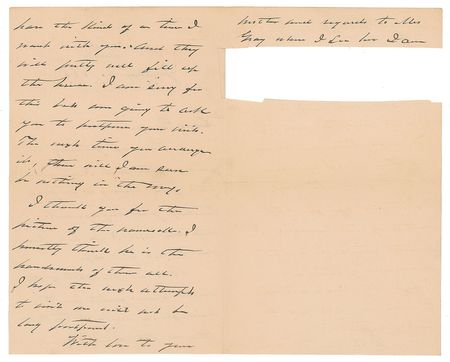 have the kind of a time I
want with you. And they
will pretty well fill up
the house. I am sorry for
this but am going to ask
you to postpone your visit.
The next time you arrange
it, there will I am sure
be nothing in the way.
I thank you for the
picture of the
honestly think he is the
handsomest of them all.
I hope the next attempt
to visit me will not be
long postponed.
With love to your
mother and regards to Mrs
Gray when I see her I am